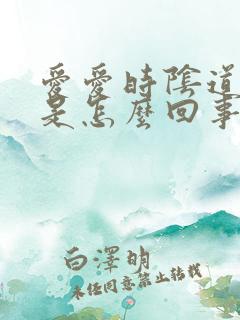 愛愛時陰道
是怎麼回事
白澤明
未經同意禁止轉載